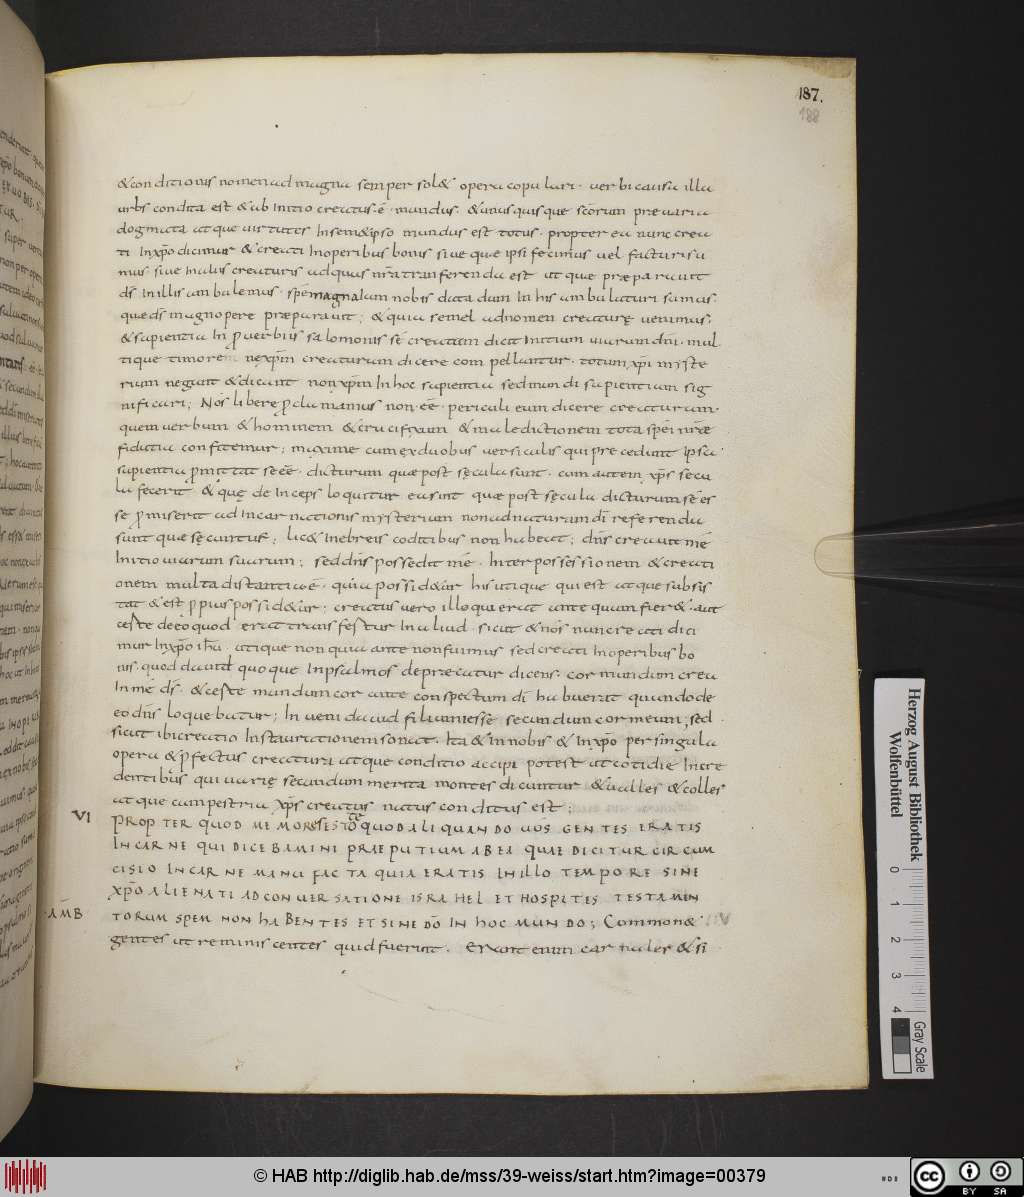 187.
188
& conditionis nomen ad magna semper sol& opera copulari· uerbi causa illa
urbs condita est & ab initio creatus ·ē· mundus· & unusquisque scōrum praeuaria
dogmata atque uirtutes In sem&ipso mundus est totus· propter ea nunc crea
ti In xp̄o dicimur & creati In operibus bonis siue quae ipsi fecimus uel facturi su
mus siue In aliis creaturis ad quas nr̄a transferenda est ut que praeparauit
dēs In illis ambulemus· spēm magnalum nobis data dum In his ambulaturi sumus·
quae ds̄ magnopere praeparauit; & quia semel ad nomen creaturę uenimus·
& sapientia In ꝓuerbiis salomonis se creatam dicit Initium uiarum dn̄i· mul
tique timorem ne xp̄m creaturam dicere compellantur· totum xp̄i myste
rium negant & dicant non xp̄m In hoc sapientia sed mundi sapientiam sig
nificari; Nos libere ꝓclamamus non ·eē· periculi eum dicere creaturam·
quem uerbum & hominem & crucifixum & maledictionem tota spēi nr̄ae
fidutia confitemur; maxime cum ex duobus uersiculis qui praecedunt ipsa
sapientia ꝓmittat se eē· dicturum quae post sęcula sunt· cum autem xp̄s secu
la fecerit & quę deinceps loquitur ea sint quae post sęcula dicturum se es
se ꝓmiserit ad Incarnationis mysterium non ad naturam dī referenda
sunt quae sęcuntur; lic& In ebreis coditibus non habeat; dn̄s creauit mē
Initio uiarum suarum; sed dn̄s possedit mē· Inter possessionem & creati
onem multa distantia ·ē· quia possid&ur his utique qui est atque subsis
tat & est ꝓpius possid&ur; creatus uero illo qui erat ante quam fier& aut
ceste de eo quod erat transfestur In aliud· sicut & nos nunc creati dici
mur In xp̄o ihū· utique non quia ante non fuimus sed creati In operibus bo
nis· quod dauid quoque In psalmos depraecatur dicens· cor mundum crea
In mē ds̄· & ceste mundum cor ante conspectum dī habuerat quando de
eo dn̄s loquebatur; Inueni dauid filium iesse secundum cor meum; sed
sicut ibi creatio Instaurationem sonat· Ita & In nobis & In xp̄o per singula
opera & ꝓfectus creatura atque conditio accipi potest ut cotidie Incre
dentibus qui uarię secundum merita montes dicuntur & ualles & colles
atque campestria xp̄s creatus natus conditus est;
VI PROPTER QUOD MEMORES ESTOTE QUOD ALIQUANDO UOS GENTES ERATIS
IN CARNE QUI DICEBAMINI PRAEPUTIUM AB EA QUAE DICITUR CIRCUM
CISIO IN CARNE MANU FACTA QUIA ERATIS IN ILLO TEMPORE SINE
XP̄O ALIENATI AD CONUERSATIONE ISRAHEL ET HOSPITES TESTAMEN
AMB TORUM SPEM NON HABENTES ET SINE DŌ IN HOC MUNDO; Common&
gentes ut reminiscentes quid fuerint. Erant enim carnales & si
Herzog August Bibliothek
Wolfenbüttel
0 1 2 3 4
Gray Scale
© HAB http://diglib.hab.de/mss/39-weiss/start.htm?image=00379
HAB
cc
BY SA